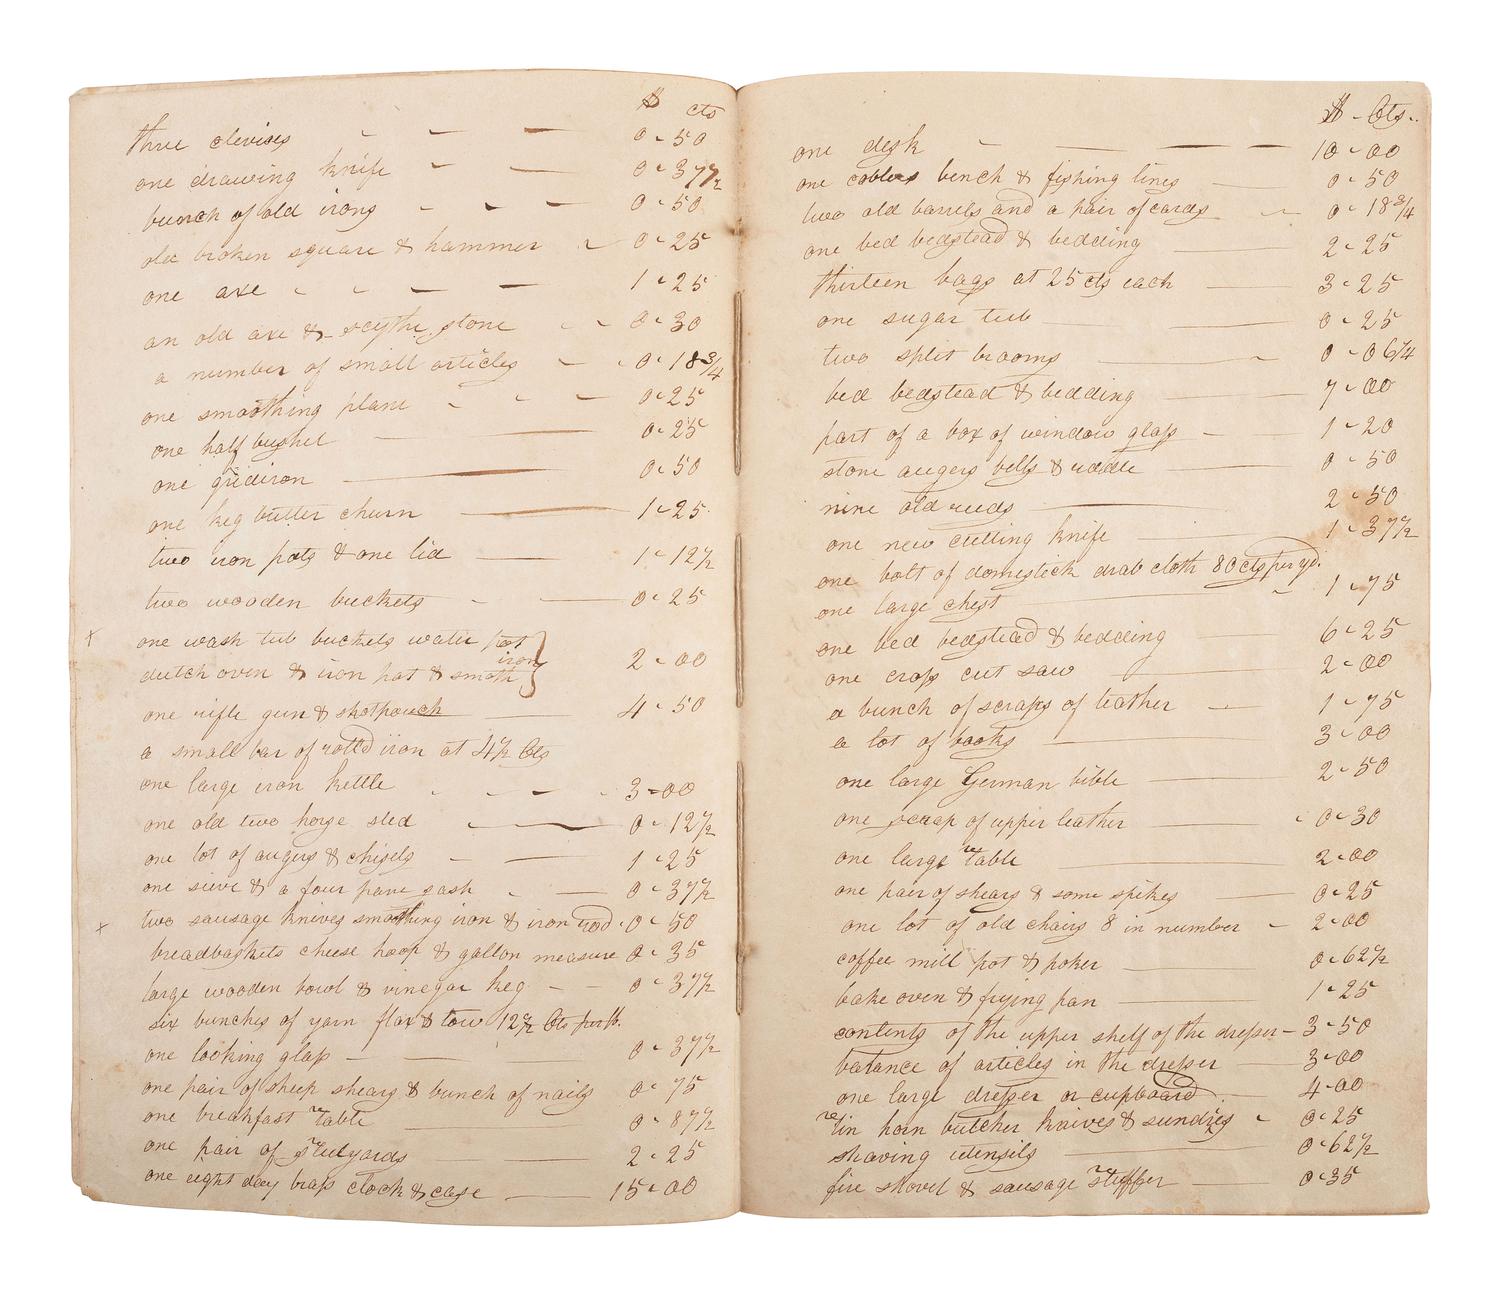 $ cts
three clevises 0 - 50
one drawing knife 0 - 37½
bunch of old irons 0 - 50
old broken square & hammer 0 - 25
one axe 1 - 25
an old axe & scythe stone 0 - 30
a number of small articles 0 - 18¾
one smoothing plane 0 - 25
one half bushel 0 - 25
one gridiron 0 - 50
one keg butter churn 1 - 25
two iron pots & one lid 1 - 12½
two wooden buckets 0 - 25
x one wash tub buckets water pot
dutch oven & iron pot & smoth iron 2 - 00
one rifle gun & shotpouch 4 - 50
a small bar of rolld iron at 4½ Cts
one large iron kettle 3 - 00
one old two horse sled 0 - 12½
one lot of augers & chisels 1 - 25
one sieve & a four pane sash 0 - 37½
x two sausage knives smoothing iron & iron rod 0 - 50
breadbaskets cheese hoop & gallon measure 0 - 35
large wooden bowl & vinegar keg 0 - 37½
six bunches of yarn flax & tow 12½ Cts per lb.
one looking glass 0 - 37½
one pair of sheep shears & bunch of nails 0 - 75
one breakfast table 0 - 87½
one pair of steelyards 2 - 25
one eight day brass clock & case 15 - 00
$ - Cts
one desk 10 - 00
one coblers bench & fishing lines 0 - 50
two old barrels and a pair of cards 0 - 18¾
one bed bedstead & bedding 2 - 25
thirteen bags at 25 cts each 3 - 25
one sugar tub 0 - 25
two split brooms 0 - 06¼
bed bedstead & bedding 7 - 00
part of a box of window glass 1 - 20
stone augers bells & riddle 0 - 50
nine old reeds 2 - 50
one new cutting knife 1 - 37½
one bolt of domestick drab cloth 80 cts per yd.
one large chest 1 - 75
one bed bedstead & bedding 6 - 25
one cross cut saw 2 - 00
a bunch of scraps of leather 1 - 75
a lot of books 3 - 00
one large German bible 2 - 50
one scrap of upper leather 0 - 30
one large table 2 - 00
one pair of shears & some spikes 0 - 25
one lot of old chairs 8 in number 2 - 00
coffee mill pot & poker 0 - 62½
bake oven & frying pan 1 - 25
contents of the upper shelf of the dresser 3 - 50
balance of articles in the dresser 3 - 00
one large dresser or cupboard 4 - 00
tin horn butcher knives & sundries 0 - 25
shaving utensils 0 - 62½
fire shovel & sausage stuffer 0 - 35